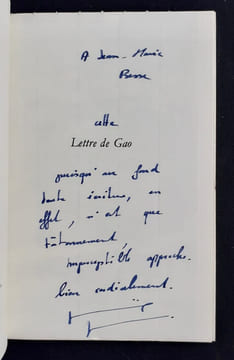 A Jean-Marie
Besse
cette
Lettre de Gao
puisqu'au fond
toute écriture, en
effet, n'est que
tâtonnement,
imperceptible approche.
bien cordialement.